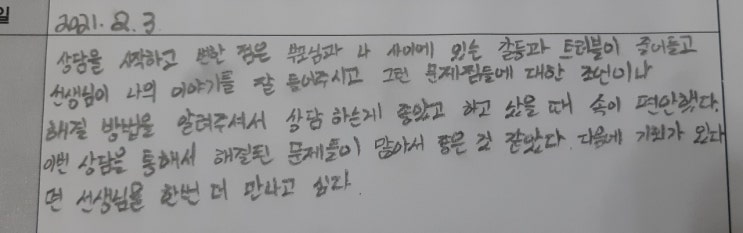 일
2021. 2. 3
상담을 시작하고 변한 점은 부모님과 나 사이에 있는 갈등과 트러블이 줄어들고
선생님이 나의 이야기를 잘 들어주시고 그런 문제점들에 대한 조언이나
해결 방법을 알려주셔서 상담 하는게 좋았고 하고 났을 때 속이 편안했다.
이번 상담을 통해서 해결된 문제들이 많아서 좋은 것 같았다. 다음에 기회가 온다
면 선생님을 한번 더 만나고 싶다.